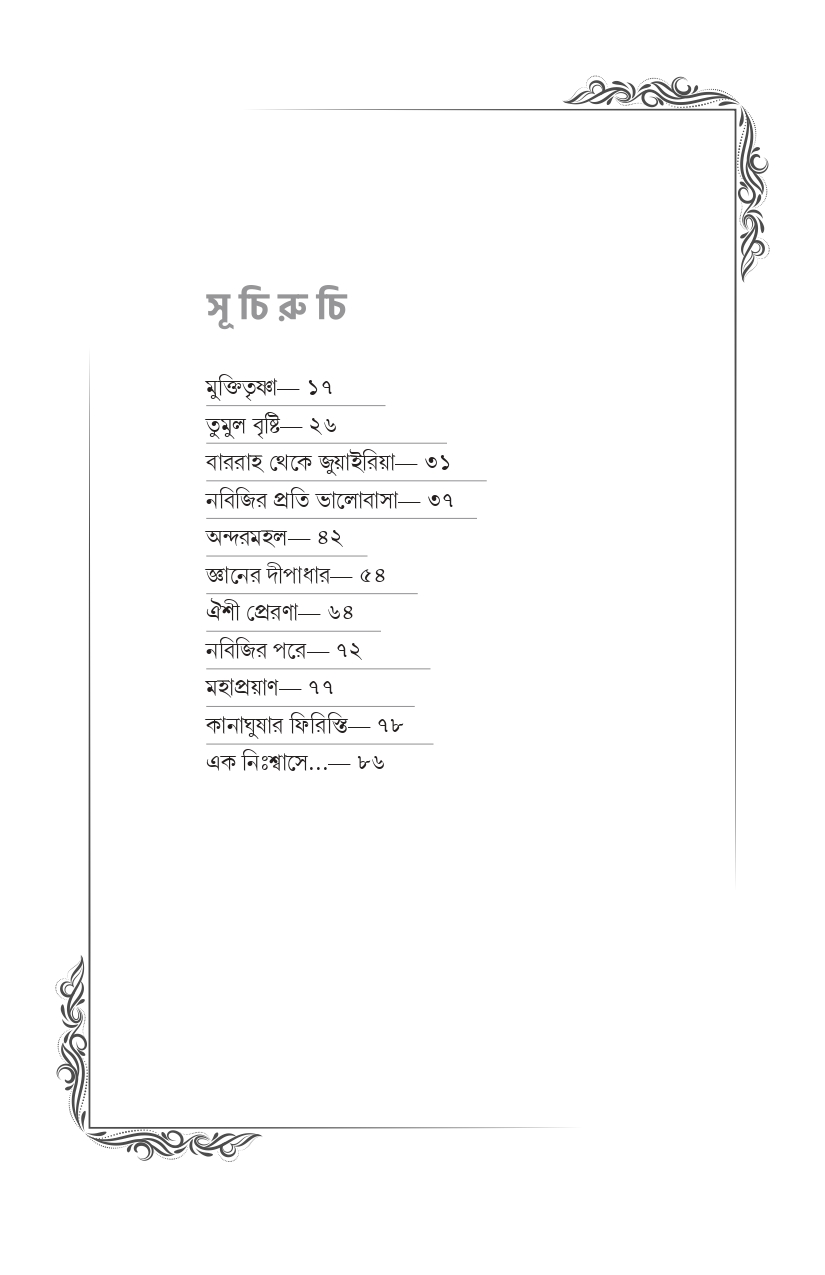 সূ চি রু চি
মুক্তিতৃষ্ণা— ১৭
তুমুল বৃষ্টি— ২৬
বাররাহ থেকে জুয়াইরিয়া— ৩১
নবিজির প্রতি ভালোবাসা— ৩৭
অন্দরমহল— ৪২
জ্ঞানের দীপাধার— ৫৪
ঐশী প্রেরণা— ৬৪
নবিজির পরে— ৭২
মহাপ্রয়াণ— ৭৭
কানাঘুষার ফিরিস্তি— ৭৮
এক নিঃশ্বাসে...— ৮৬